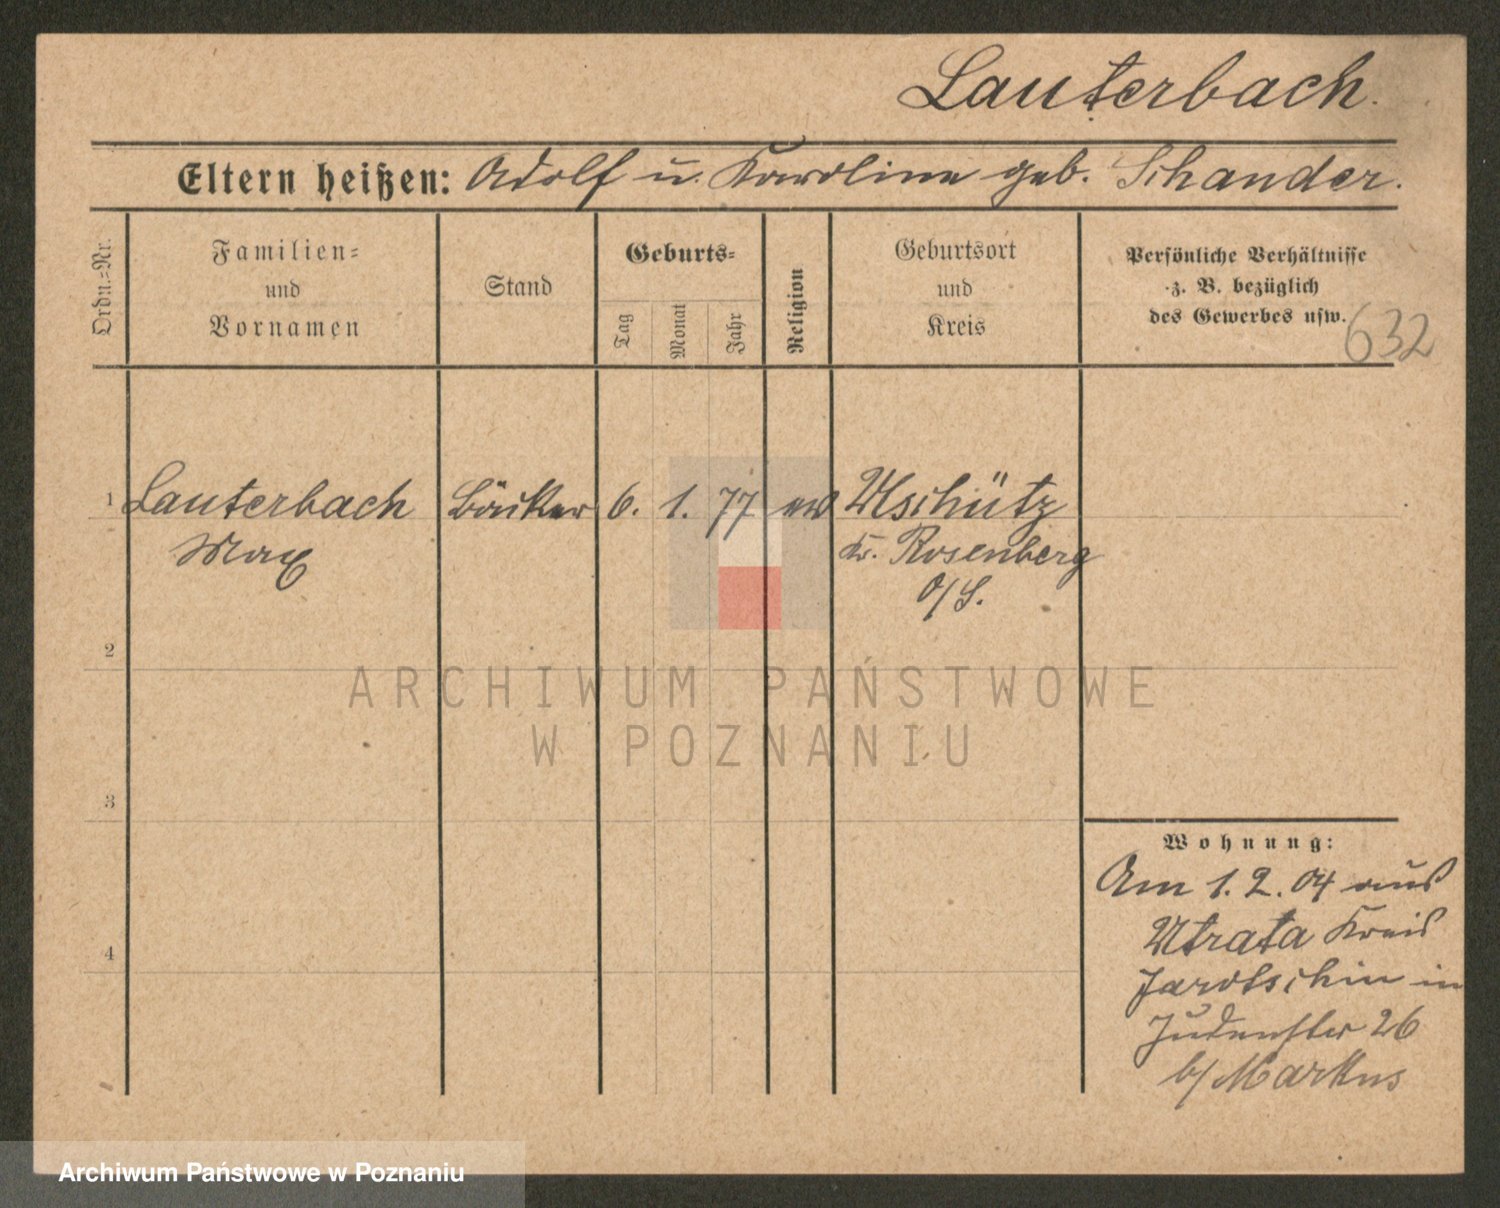 Lauterbach.
Eltern heißen: Adolf u. Karoline geb. Schander.
Ordn.-Nr.
Familien-
und
Vornamen
Stand
Geburts-
Tag
Monat
Jahr
Religion
Geburtsort
und
Kreis
Persönliche Verhältnisse
z. B. bezüglich
des Gewerbes usw.
632
1 Lauterbach Bäcker 6. 1. 77 ev Uschütz
Max Kr. Rosenberg
O/S.
2
3
4
Wohnung:
Am 1.2.04 aus
Utrata Kreis
Jarotschin in
Judenstr 26
b/ Markus
ARCHIWUM PAŃSTWOWE
W POZNANIU
Archiwum Państwowe w Poznaniu